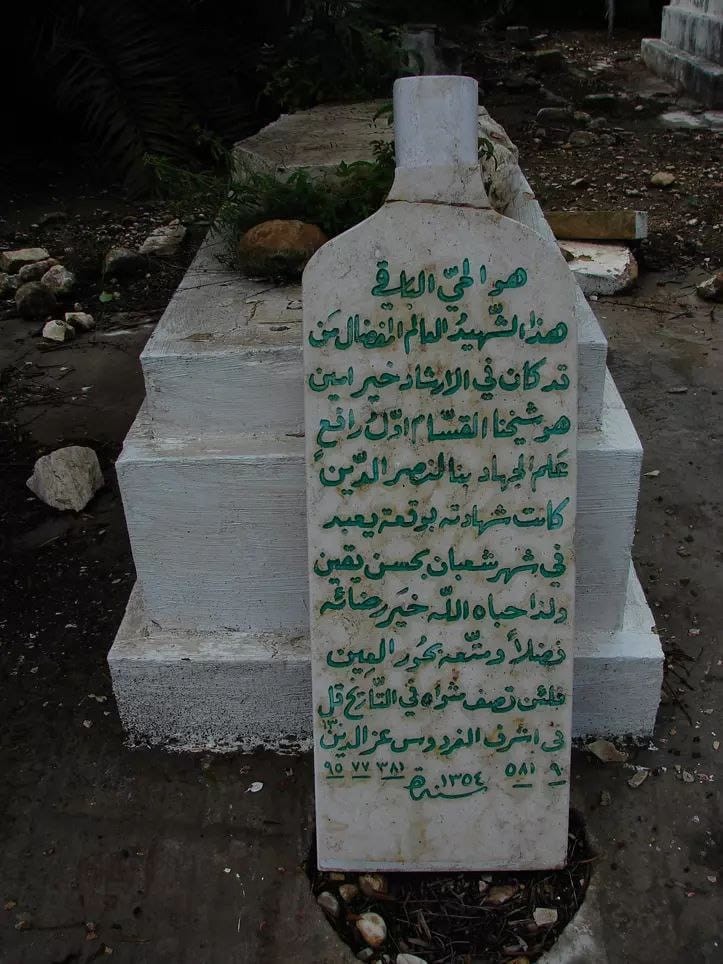 هو الحيّ الباقي
هذا الشّهيدُ العالم المفضال مَن
قد كان في الارشاد خير امين
هو شيخنا القسّام اوّل رافعٍ
عَلم الجهاد بنا لنصر الدّين
كانت شهادته بوقعة يعبد
في شهر شعبان بحسن يقين
ولذا حباه اللّه خيَر رضائه
فضلاً ومتّعه بحُور العِين
فلئن تصف مثواه في التّاريخ قل
في اشرف الفردوس عز الدين
٩٠ ٥٨١ ٣٨١ ٧٧ ٩٥
سنة ١٣٥٤